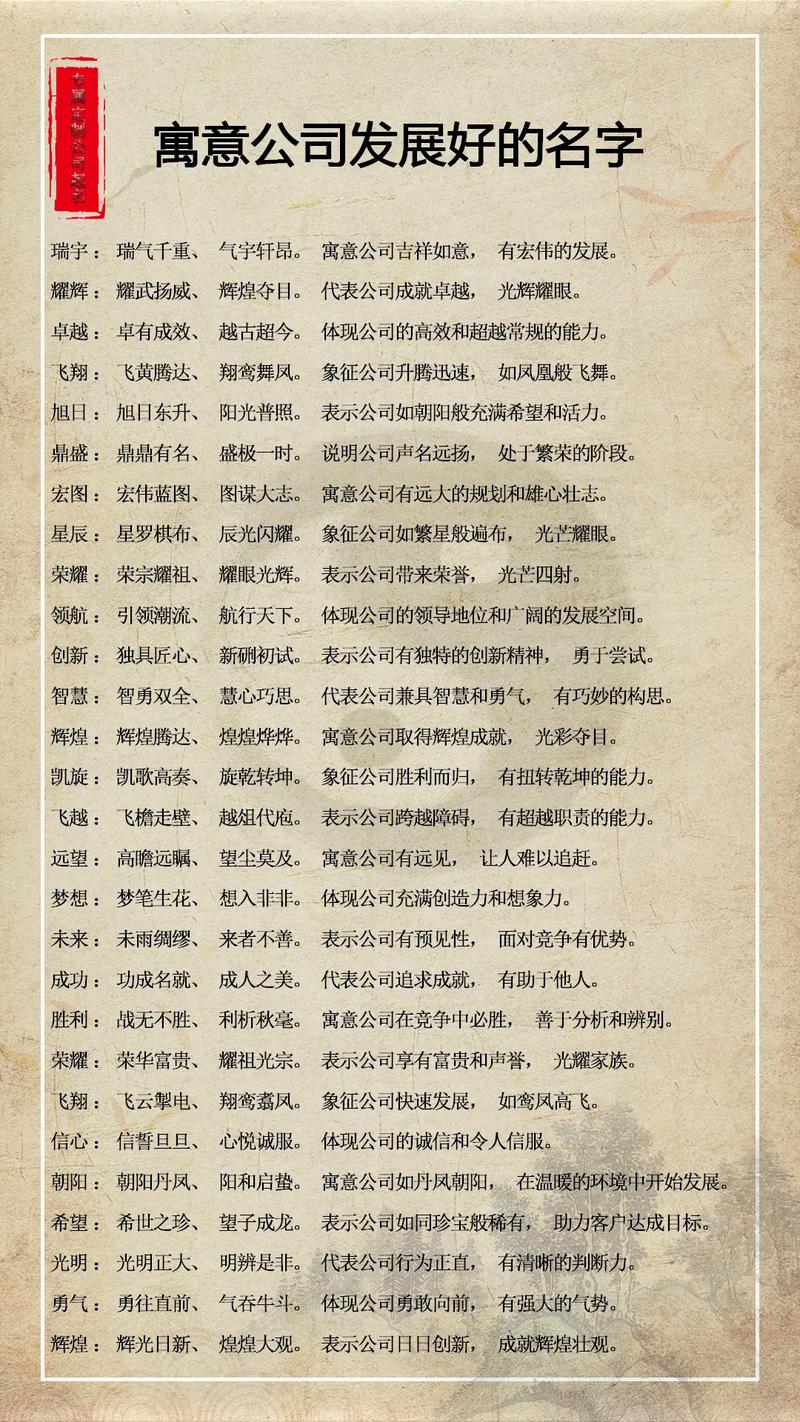 寓意公司发展好的名字
瑞宇： 瑞气千重、 气宇轩昂。 寓意公司吉祥如意， 有宏伟的发展。
耀辉： 耀武扬威、 辉煌夺目。 代表公司成就卓越， 光辉耀眼。
卓越： 卓有成效、 越古超今。 体现公司的高效和超越常规的能力。
飞翔： 飞黄腾达、 翔鸾舞凤。 象征公司升腾迅速， 如凤凰般飞舞。
旭日： 旭日东升、 阳光普照。 表示公司如朝阳般充满希望和活力。
鼎盛： 鼎鼎有名、 盛极一时。 说明公司声名远扬， 处于繁荣的阶段。
宏图： 宏伟蓝图、 图谋大志。 寓意公司有远大的规划和雄心壮志。
星辰： 星罗棋布、 辰光闪耀。 象征公司如繁星般遍布， 光芒耀眼。
荣耀： 荣宗耀祖、 耀眼光辉。 表示公司带来荣誉， 光芒四射。
领航： 引领潮流、 航行天下。 体现公司的领导地位和广阔的发展空间。
创新： 独具匠心、 新硎初试。 表示公司有独特的创新精神， 勇于尝试。
智慧： 智勇双全、 慧心巧思。 代表公司兼具智慧和勇气， 有巧妙的构思。
辉煌： 辉煌腾达、 煌煌烨烨。 寓意公司取得辉煌成就， 光彩夺目。
凯旋： 凯歌高奏、 旋乾转坤。 象征公司胜利而归， 有扭转乾坤的能力。
飞越： 飞檐走壁、 越俎代庖。 表示公司跨越障碍， 有超越职责的能力。
远望： 高瞻远瞩、 望尘莫及。 寓意公司有远见， 让人难以追赶。
梦想： 梦笔生花、 想入非非。 体现公司充满创造力和想象力。
未来： 未雨绸缪、 来者不善。 表示公司有预见性， 面对竞争有优势。
成功： 功成名就、 成人之美。 代表公司追求成就， 有助于他人。
胜利： 战无不胜、 利析秋毫。 寓意公司在竞争中必胜， 善于分析和辨别。
荣耀： 荣华富贵、 耀祖光宗。 表示公司享有富贵和声誉， 光耀家族。
飞翔： 飞云掣电、 翔鸾翥凤。 象征公司快速发展， 如鸾凤高飞。
信心： 信誓旦旦、 心悦诚服。 体现公司的诚信和令人信服。
朝阳： 朝阳丹凤、 阳和启蛰。 寓意公司如丹凤朝阳， 在温暖的环境中开始发展。
希望： 希世之珍、 望子成龙。 表示公司如同珍宝般稀有， 助力客户达成目标。
光明： 光明正大、 明辨是非。 代表公司行为正直， 有清晰的判断力。
勇气： 勇往直前、 气吞牛斗。 体现公司勇敢向前， 有强大的气势。
辉煌： 辉光日新、 煌煌大观。 表示公司日日创新， 成就辉煌壮观。